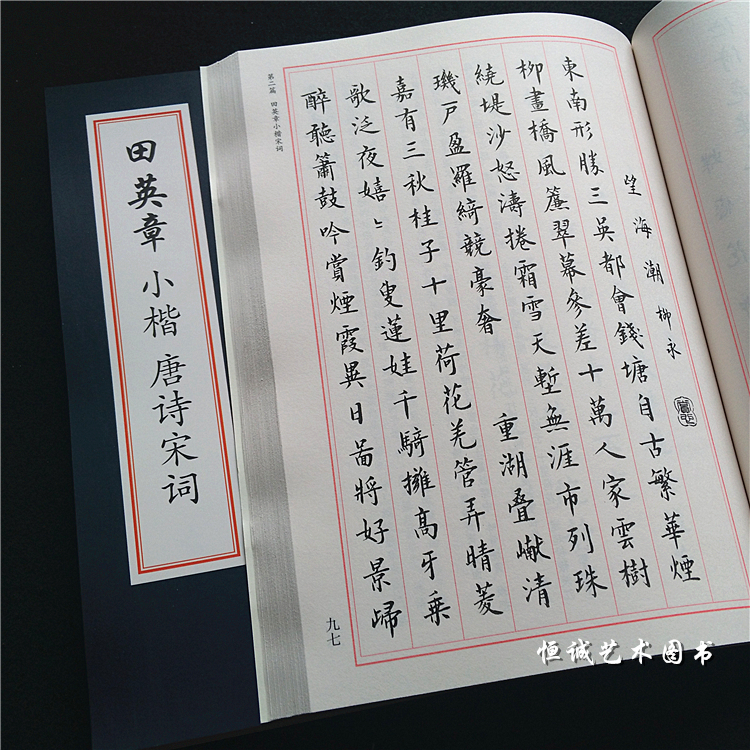 田英章小楷唐诗宋词
望海潮 柳永
東南形勝三吳都會錢塘自古繁華煙
柳畫橋風簾翠幕參差十萬人家雲樹
繞堤沙怒濤捲霜雪天塹無涯市列珠
璣戶盈羅綺競豪奢 重湖疊巘清
嘉有三秋桂子十里荷花羌管弄晴菱
歌泛夜嬉〻釣叟蓮娃千騎擁高牙乘
醉聽簫鼓吟賞煙霞異日啚將好景歸
第二篇 田英章小楷宋词
九七
恒诚艺术图书